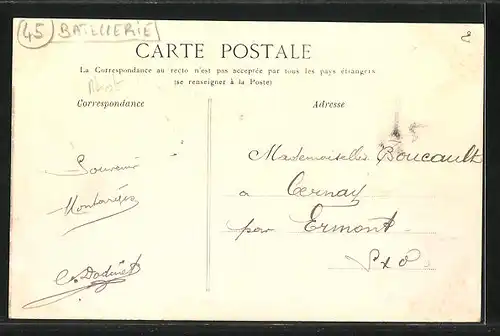 45 BATELLERIE
2
CARTE POSTALE
La Correspondance au recto n'est pas acceptée par tous les pays étrangers
(se renseigner à la Poste)
Correspondance
Adresse
Souvenir
Montargis
Mademoiselle Boucault
a Cernay
par Ermont
S & O